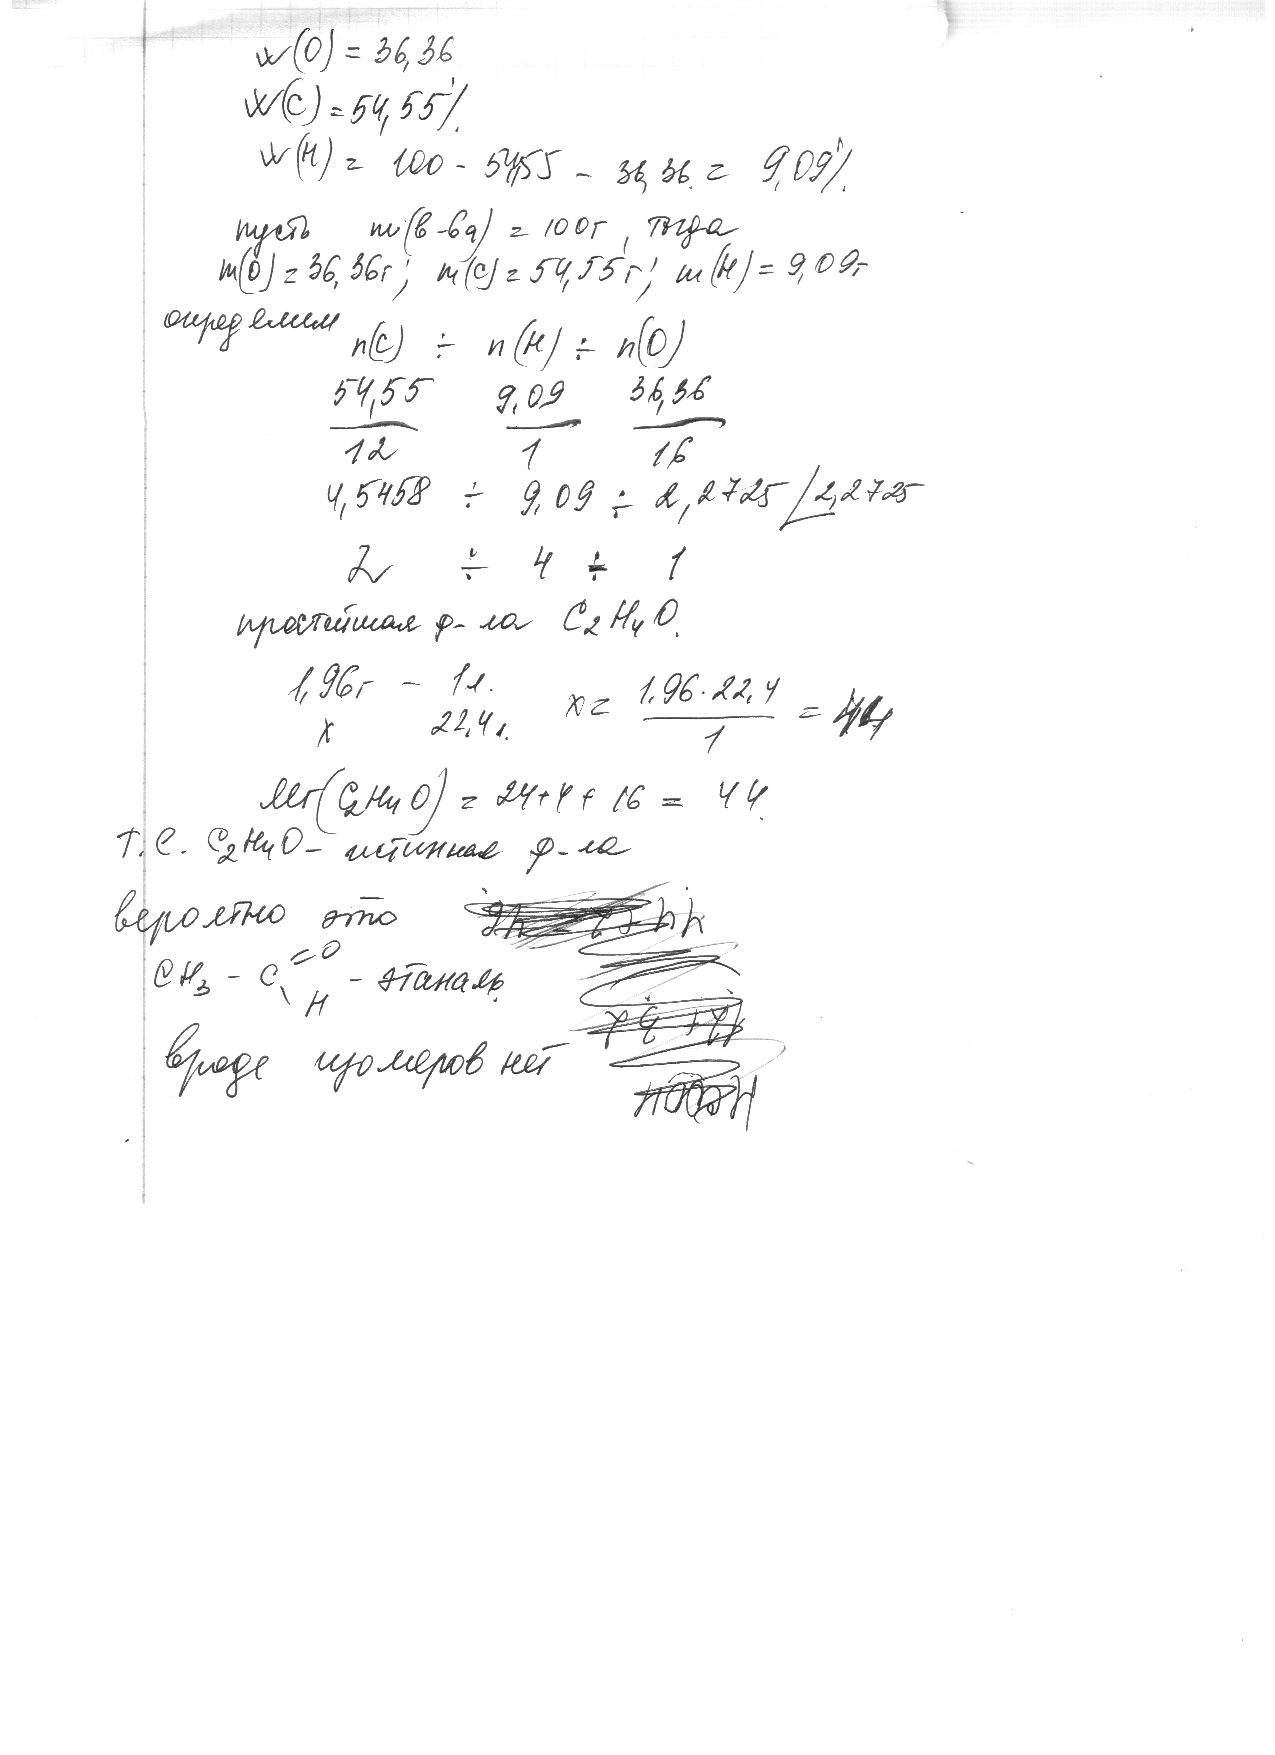 w(O) = 36,36
w(C) = 54,55%.
w(H) = 100 - 54,55 - 36,36 = 9,09%.
пусть m(в-ва) = 100г, тогда
m(O) = 36,36г; m(C) = 54,55г; m(H) = 9,09г
определим
n(C) ÷ n(H) ÷ n(O)
54,55 9,09 36,36
12 1 16
4,5458 ÷ 9,09 ÷ 2,2725 / 2,2725
2 ÷ 4 ÷ 1
простейшая ф-ла C₂H₄O.
1,96г - 1л. x = 1,96·22,4 = 44
x 22,4л. 1
Mr(C₂H₄O) = 24+4+16 = 44.
т.е. C₂H₄O - истинная ф-ла
вероятно это
CH₃ - C =O \ H - этаналь.
вроде изомеров нет